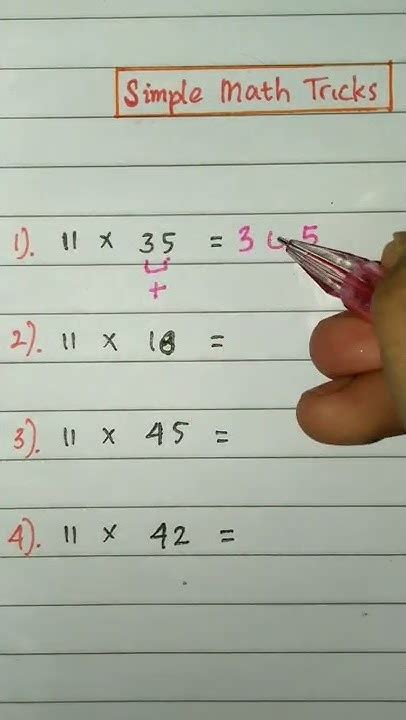 Simple Math Tricks
1). 11 × 35 = 3 5
+
2). 11 × 18 =
3). 11 × 45 =
4). 11 × 42 =